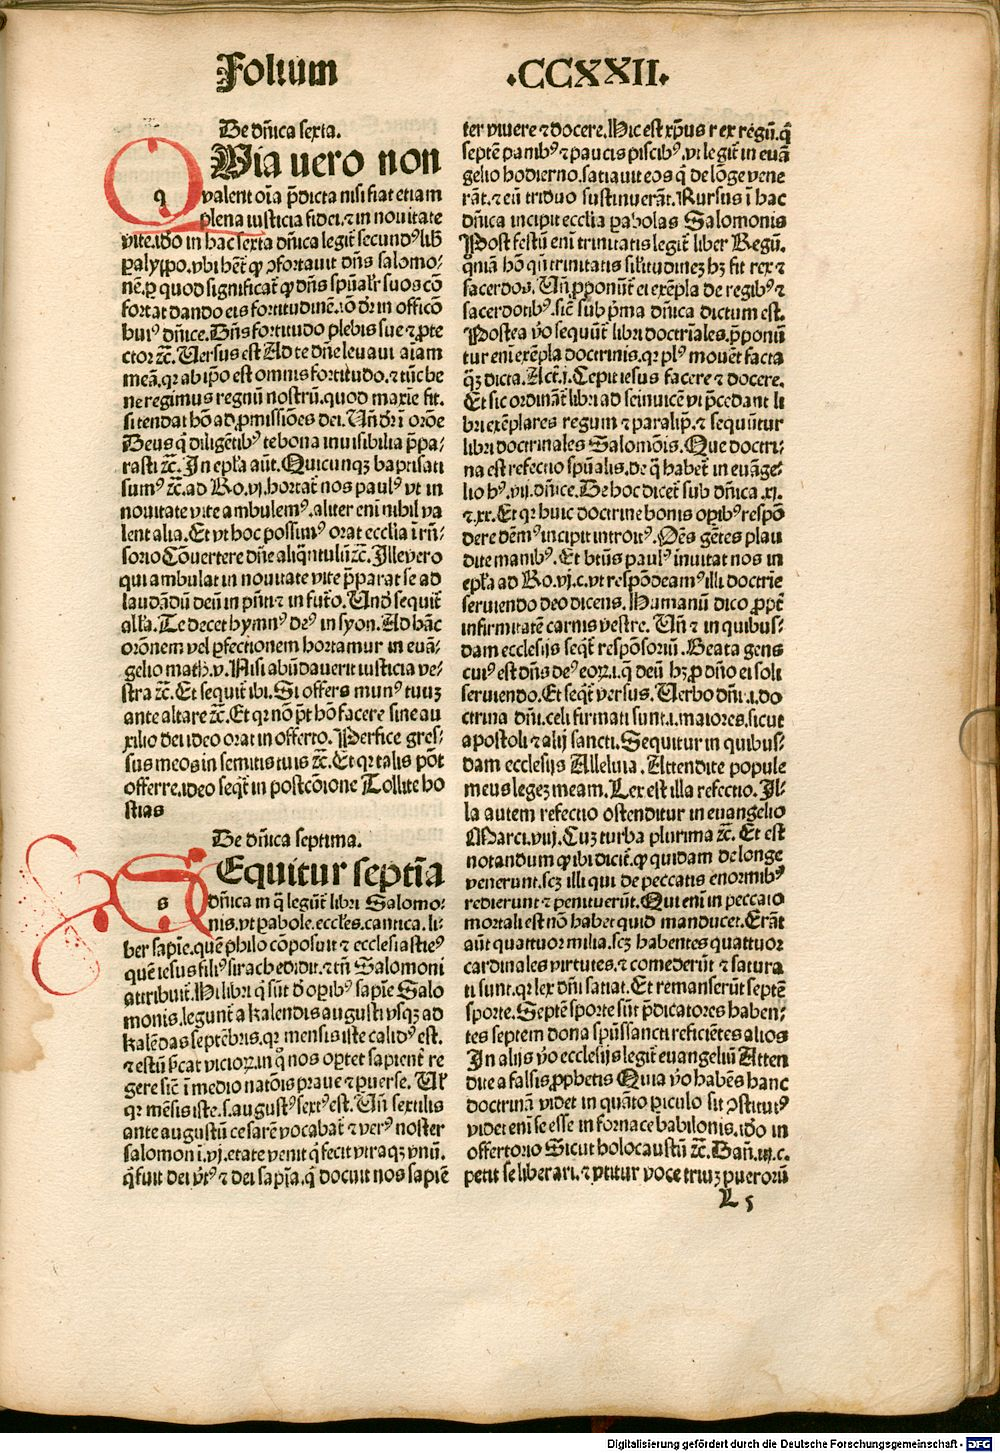 Folium .CCXXII.
De dñica sexta.
QUia uero non
valent oĩa p̃dicta nisi fiat etiam
plena iusticia fidei. ⁊ in nouitate
vite. iđo in hac sexta dñica legit̃ secundꝰ lib̃
ꝑalypo. vbi hẽt̃ ꝙ ↄfortauit dñs salomo⸗
nẽ. ꝑ quod significat̃ ꝙ dñs spũalr̃ suos cõ
fortat dando eis fortitudinẽ. iõ dr̃ in officõ
huiꝰ dñice. Dñs fortitudo plebis sue ⁊ ꝓte
ctor ⁊c̃. Versus est Ad te dñe leuaui aĩam
meã. qꝛ ab ip̃o est omnis fortitudo. ⁊ tũc be
ne regimus regnũ nostrũ. quod maxĩe fit.
si tendat hõ ad ꝓmissiões dei. Uñ dr̃ ĩ orõe
Deus q̃ diligẽtibꝰ te bona inuisibilia p̃pa⸗
rasti ⁊c̃. In ep̃la aũt. Quicunqꝫ baptisati
sumꝰ ⁊c̃. ad Ro. vj. hortat̃ nos paulꝰ vt in
nouitate vite ambulemꝰ. aliter eni nihil va
lent alia. Et vt hoc possimꝰ orat ecclĩa ĩ rñ⸗
sorio Cõuertere dñe aliq̃ntulũ ⁊c̃. Ille vero
qui ambulat in nouitate vite p̃parat se ad
laudãdũ deũ in pñti ⁊ in futõ. Unđ sequit̃
all̃a. Te decet hymnꝰ deꝰ in syon. Ad hãc
orõnem vel ꝑfectionem hortamur in euã⸗
gelio math. v. Nisi abũdauerit iusticia ve⸗
stra ⁊c̃. Et sequit̃ ibi. Si offers munꝰ tuuꝫ
ante altare ⁊c̃. Et qꝛ nõ p̃t hõ facere sine au
xilio dei ideo orat in offerto. Perfice gres⸗
sus meos in semitis tuis ⁊c̃. Et qꝛ talis põt
offerre. ideo seqt̃ in postcõione Tollite ho
stias
De dñica septima.
SEquitur septĩa
dñica in q̃ legũt̃ libri Salomo⸗
nis. vt pabole. eccl̃es. cantica. li⸗
ber sapĩe. quẽ philo cõposuit ⁊ ecclesiasticꝰ
quẽ iesus filiꝰ sirach edidit. ⁊ tñ Salomoni
attribuit̃. Hi libri q̃ sũt đ oꝑibꝰ sapĩe Salo
monis. legunt̃ a kalendis augusti vsqꝫ ad
kalẽdas septẽbris. qꝛ mensis iste calidꝰ est.
⁊ estũ s̃cat vicioꝝ. in qͦ nos oꝑtet sapient̃ re
gere sic̃ ĩ medio natõis praue ⁊ ꝑuerse. Ul̃
qꝛ mẽsis iste. s. augustꝰ sextꝰ est. Uñ sextilis
ante augustũ cesarẽ vocabat̃ ⁊ verꝰ noster
salomon ĩ. vj. etate venit q̃ fecit vtraqꝫ vnũ.
q̃ fuit dei v̾tꝰ ⁊ dei sapĩa. q̃ docuit nos sapiẽ
ter viuere ⁊ docere. Hic est xp̃us rex regũ. q̃
septẽ panibꝰ ⁊ paucis piscibꝰ. vt legit̃ in euã
gelio hodierno. satiauit eos q̃ de lõge vene
rãt. ⁊ eũ triduo sustinuerãt. Rursus ĩ hac
dñica incipit ecclĩa pabolas Salomonis
Post festũ eni trinitatis legit̃ liber Regũ.
qm̃iã hõ qñ trinitatis sil̃itudineꝫ hꝫ fit rex ⁊
sacerdos. Uñ ꝓponũt̃ ei exẽpla de regibꝰ ⁊
sacerdotibꝰ. sic̃ sub p̃ma dñica dictum est.
Postea v̾o sequũt̃ libri doctrĩales. p̃ponũ
tur eni exẽpla doctrinis. qꝛ plꝰ mouẽt facta
q̃ꝫ dicta. Act̃. j. Cepit iesus facere ⁊ docere.
Et sic ordinãt̃ libri ad seinuicẽ vt p̃cedant li
bri exẽplares regum ⁊ paralip̃. ⁊ sequũtur
libri doctrinales Salomõis. Que doctri⸗
na est refectio spũalis. de q̃ habet̃ in euãge⸗
lio hꝰ. vij. dñice. De hoc dicet̃ sub dñica. xj.
⁊. xx. Et qꝛ huic doctrine bonis oꝑibꝰ respõ
dere dẽmꝰ incipit introitꝰ. Oẽs gẽtes plau
dite manibꝰ. Et btũs paulꝰ inuitat nos in
ep̃la ad Ro. vj. c. vt respõdeamꝰ illi doctrĩe
seruiendo deo dicens. Humanũ dico ꝓpt̃
infirmitatẽ carnis vestre. Uñ ⁊ in quibus⸗
dam ecclesijs seqt̃ respõsoriũ. Beata gens
cuiꝰ est dñs deꝰ eoꝝ. i. q̃ deũ hꝫ ꝓ dño ei soli
seruiendo. Et seqt̃ versus. Verbo dñi. i. do
ctrina dñi. celi firmati sunt. i. maiores. sicut
apostoli ⁊ alij sancti. Sequitur in quibus⸗
dam ecclesijs Alleluia. Attendite popule
meus legeꝫ meam. Lex est illa refectio. Il⸗
la autem refectio ostenditur in euangelio
Marci. viij. Cuꝫ turba plurima ⁊c̃. Et est
notandum ꝙ ibi dicit̃. ꝙ quidam de longe
venerunt. scꝫ illi qui de peccatis enormibꝰ
redierunt ⁊ penituerũt. Qui eni in peccato
mortali est nõ habet quid manducet. Erãt
aũt quattuor milia. scꝫ habentes quattuor
cardinales virtutes. ⁊ comederũt ⁊ satura
ti sunt. qꝛ lex dñi satiat. Et remanserũt septẽ
sporte. Septẽ sporte sũt p̃dicatores haben⸗
tes septem dona spũssancti reficiẽtes alios
In alijs v̾o ecclesijs legit̃ euangeliũ Atten
dite a falsis ꝓphetis Quia v̾o habẽs hanc
doctrinã videt in quãto ꝑiculo sit ↄstitutꝰ
videt eni se esse in fornace babilonis. iđo in
offertorio Sicut holocaustũ ⁊c̃. Dañ. iij. c.
petit se liberari. ⁊ vtitur voce triuꝫ pueroꝝ
L 5
Digitalisierung gefördert durch die Deutsche Forschungsgemeinschaft - DFG